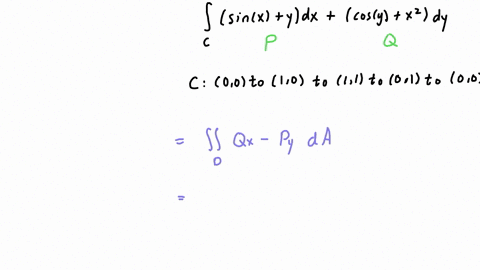 ∫ (sin(x) + y) dx + (cos(y) + x²) dy
C
P Q
C: (0,0) to (1,0) to (1,1) to (0,1) to (0,0)
= ∬ Qx - Py dA
D
=